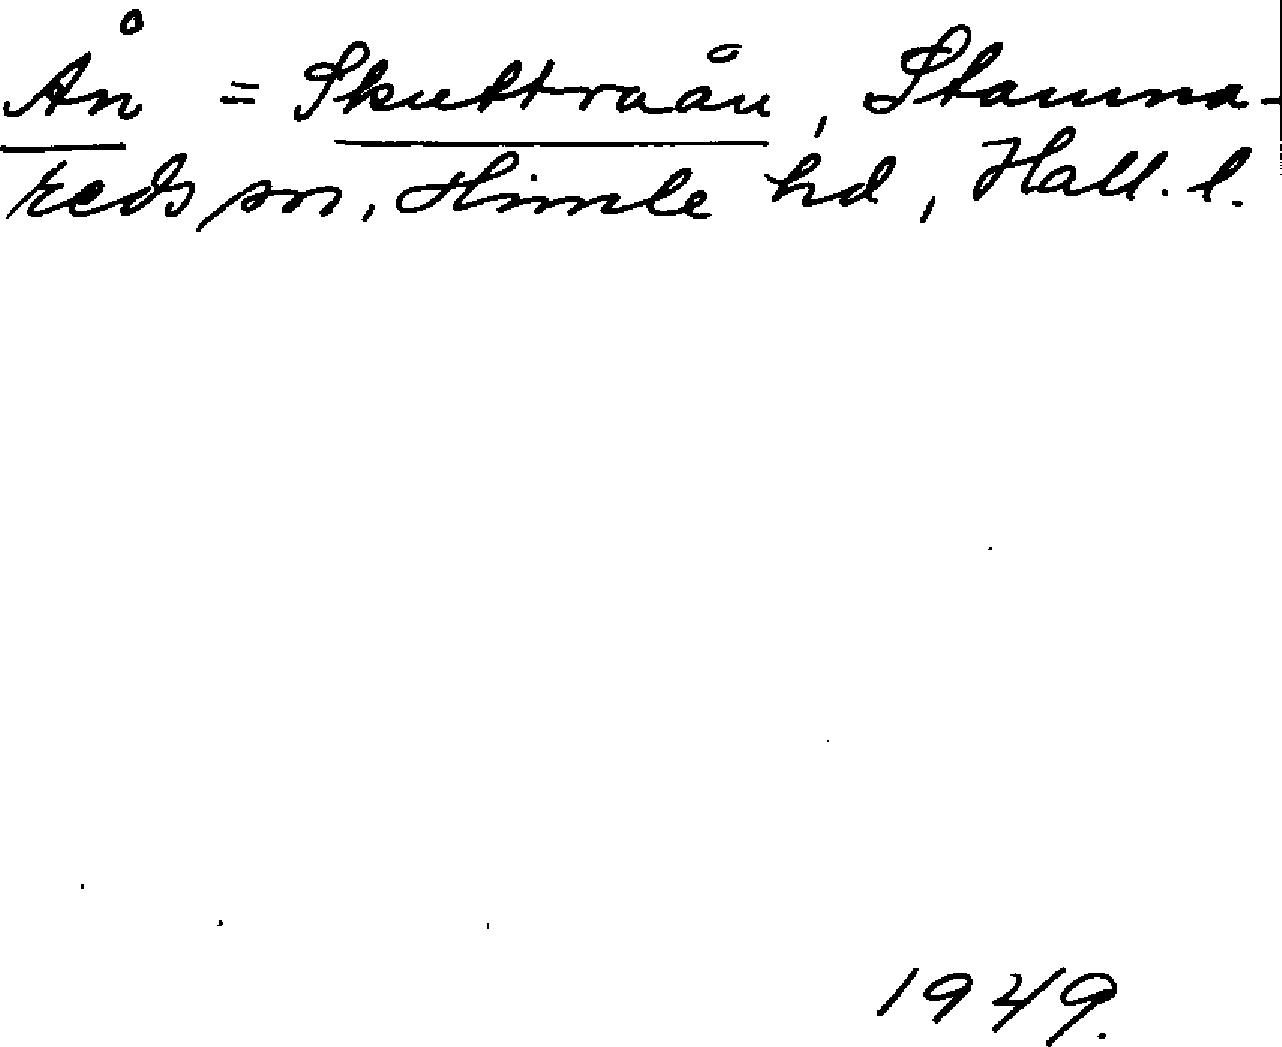 Ån = Skuttraån, Stamna-
reds sn, Himle hd, Hall. l.
1949.